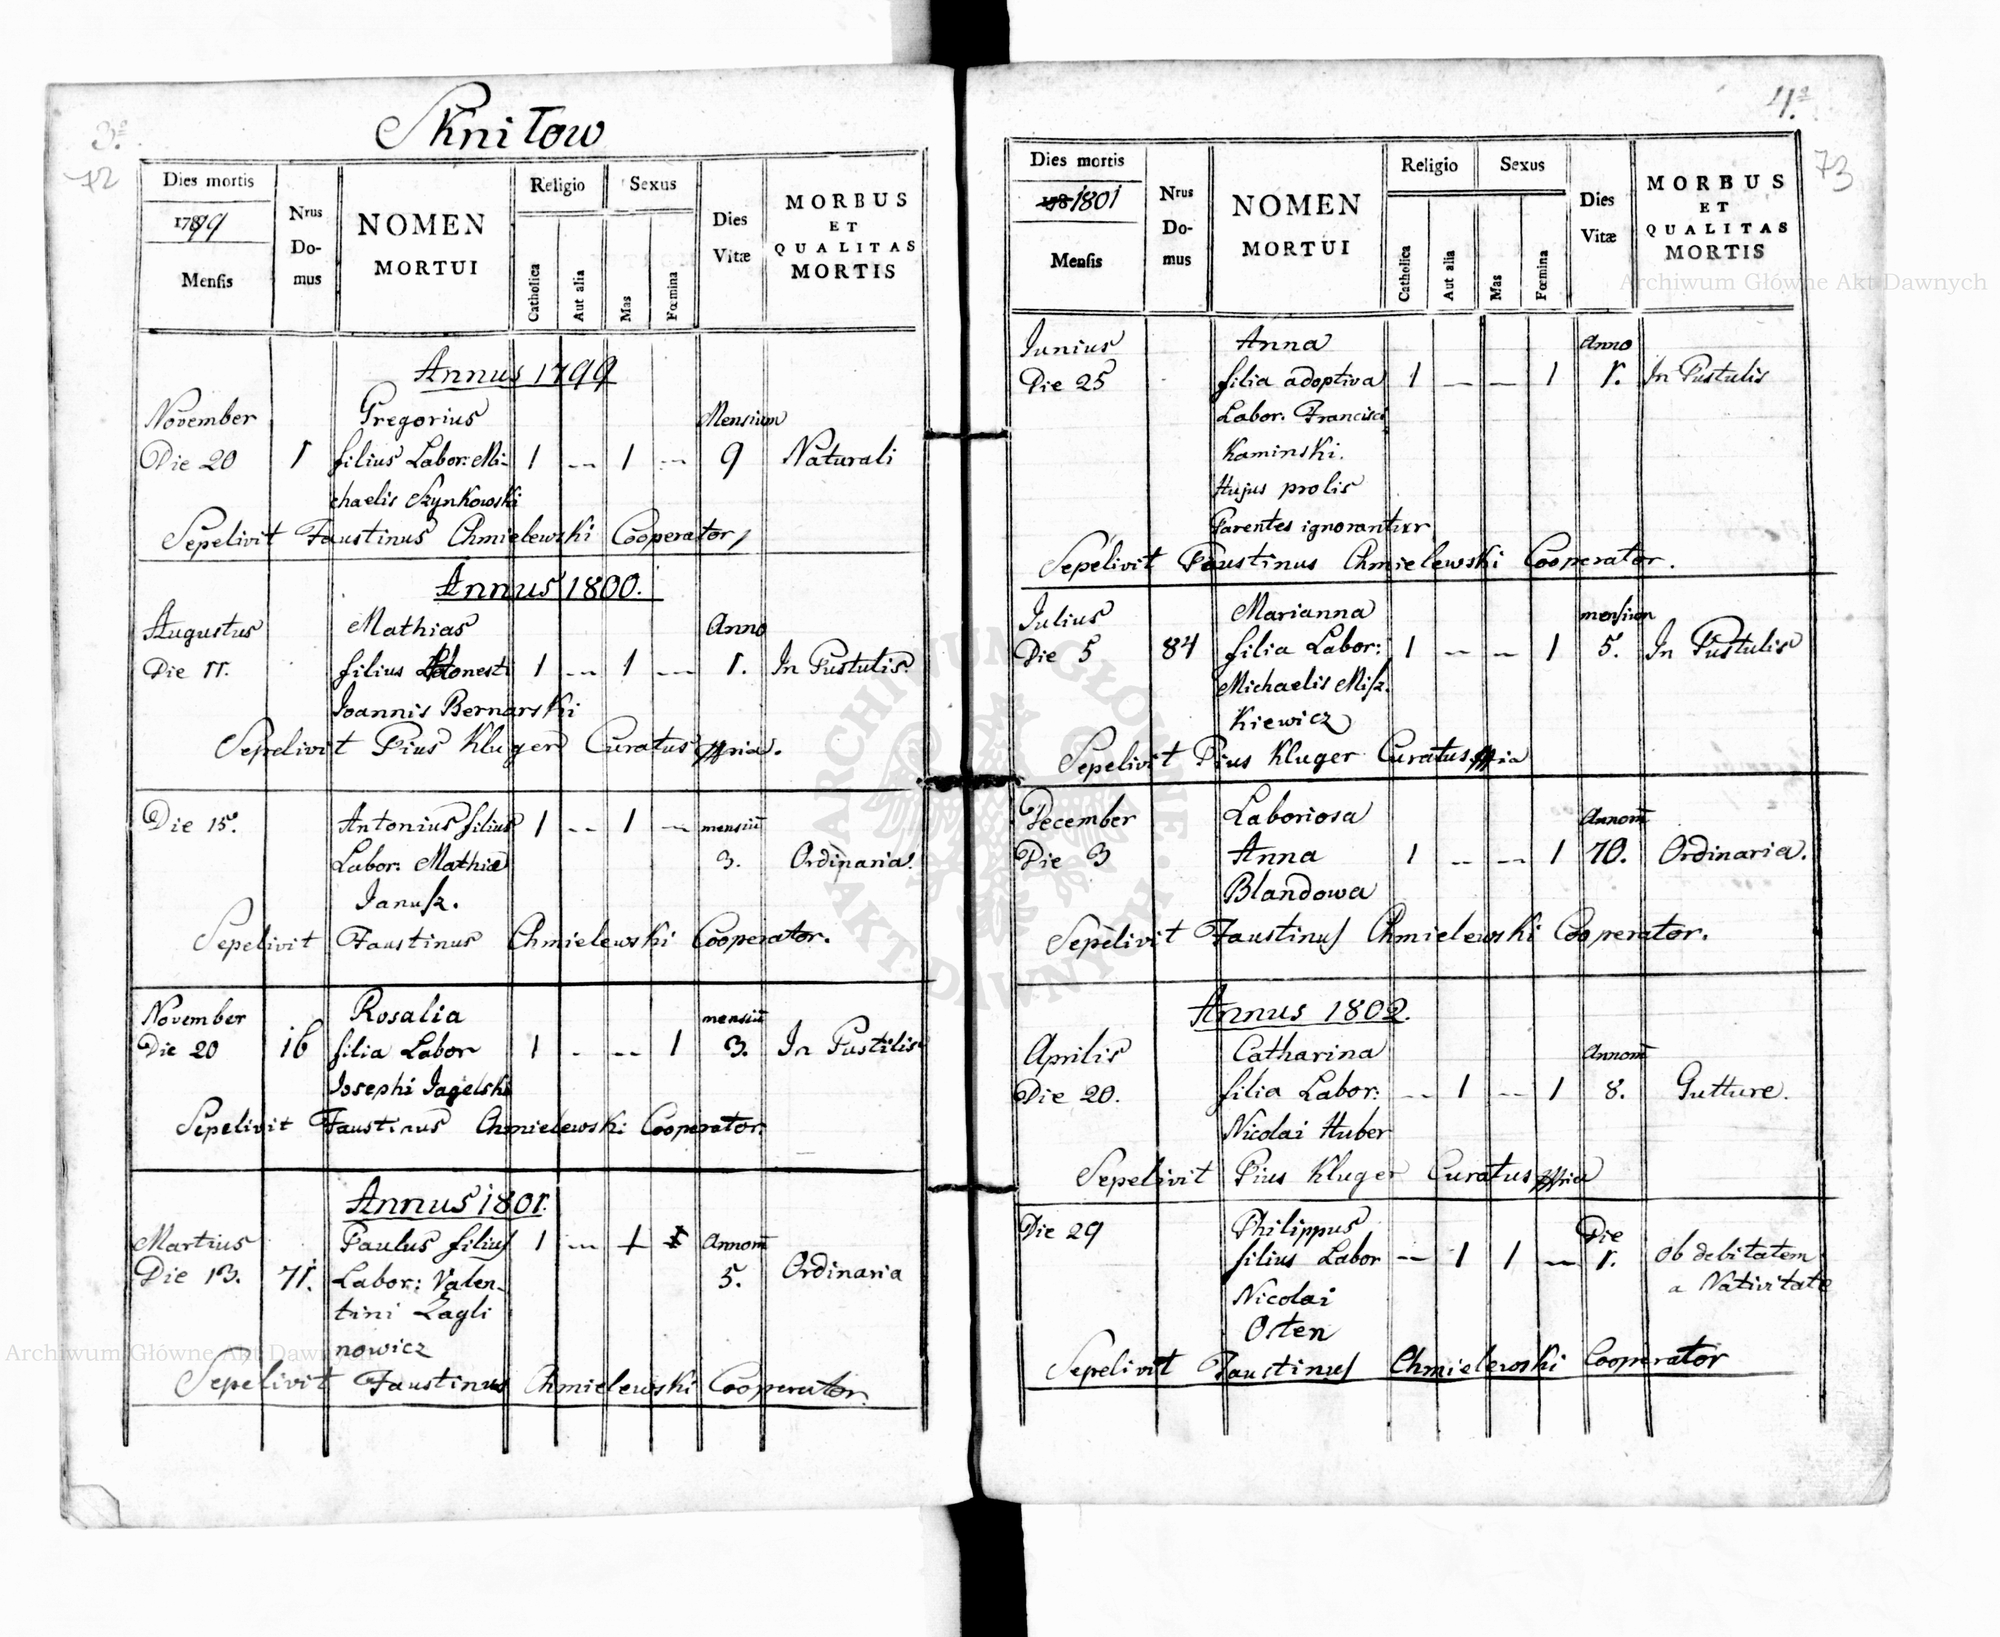 Sknitow
3.
72
Dies mortis
1799
Mensis
Nrus Domus
NOMEN MORTUI
Religio
Catholica
Aut alia
Sexus
Mas
Fœmina
Dies Vitæ
MORBUS ET QUALITAS MORTIS
Annus 1799
November Gregorius Mensium
Die 20 1 filius Labor: Mi- 1 -- 1 -- 9 Naturali
chaelis Szynkowski
Sepelivit Faustinus Chmielewski Cooperator
Annus 1800.
Augustus Mathias Anno
Die 11. filius Honesti 1 -- 1 -- 1. In Pustulis
Joannis Bernarski
Sepelivit Pius Kluger Curatus mpria.
Die 15. Antonius filius 1 -- 1 -- mensiu̅
Labor: Mathiæ 3. Ordinaria.
Janusz.
Sepelivit Faustinus Chmielewski Cooperator.
November Rosalia mensiu̅
Die 20 16 filia Labor 1 - -- 1 3. In Pustulis
Josephi Jagelski
Sepelivit Faustinus Chmielewski Cooperator.
Annus 1801.
Martius Paulus filius 1 -- 1 Annom̅
Die 13. 71. Labor: Valen- 5. Ordinaria
tini Zagli
nowicz
Sepelivit Faustinus Chmielewski Cooperator.
4.
73
Dies mortis
1801
Mensis
Nrus Domus
NOMEN MORTUI
Religio
Catholica
Aut alia
Sexus
Mas
Fœmina
Dies Vitæ
MORBUS ET QUALITAS MORTIS
Junius Anna Anno
Die 25 filia adoptiva 1 -- -- 1 1. In Pustulis
Labor. Francisci
Kaminski.
Hujus prolis
Parentes ignorantur
Sepelivit Faustinus Chmielewski Cooperator.
Julius Marianna mensium
Die 5 84 filia Labor: 1 -- -- 1 5. In Pustulis
Michaelis Misz.
kiewicz
Sepelivit Pius Kluger Curatus mpria
December Laboriosa Annom̅
Die 3 Anna 1 -- -- 1 70. Ordinaria.
Blandowa
Sepelivit Faustinus Chmielewski Cooperator.
Annus 1802.
Aprilis Catharina Annom̅
Die 20. filia Labor: -- 1 -- 1 8. Gutture.
Nicolai Huber
Sepelivit Pius Kluger Curatus mpria
Die 29 Philippus Die
filius Labor -- 1 1 -- 1. ob debitatem
Nicolai a Nativitate
Osten
Sepelivit Faustinus Chmielewski Cooperator
Archiwum Główne Akt Dawnych
Archiwum Główne Akt Dawnych
ARCHIWUM GŁÓWNE AKT DAWNYCH